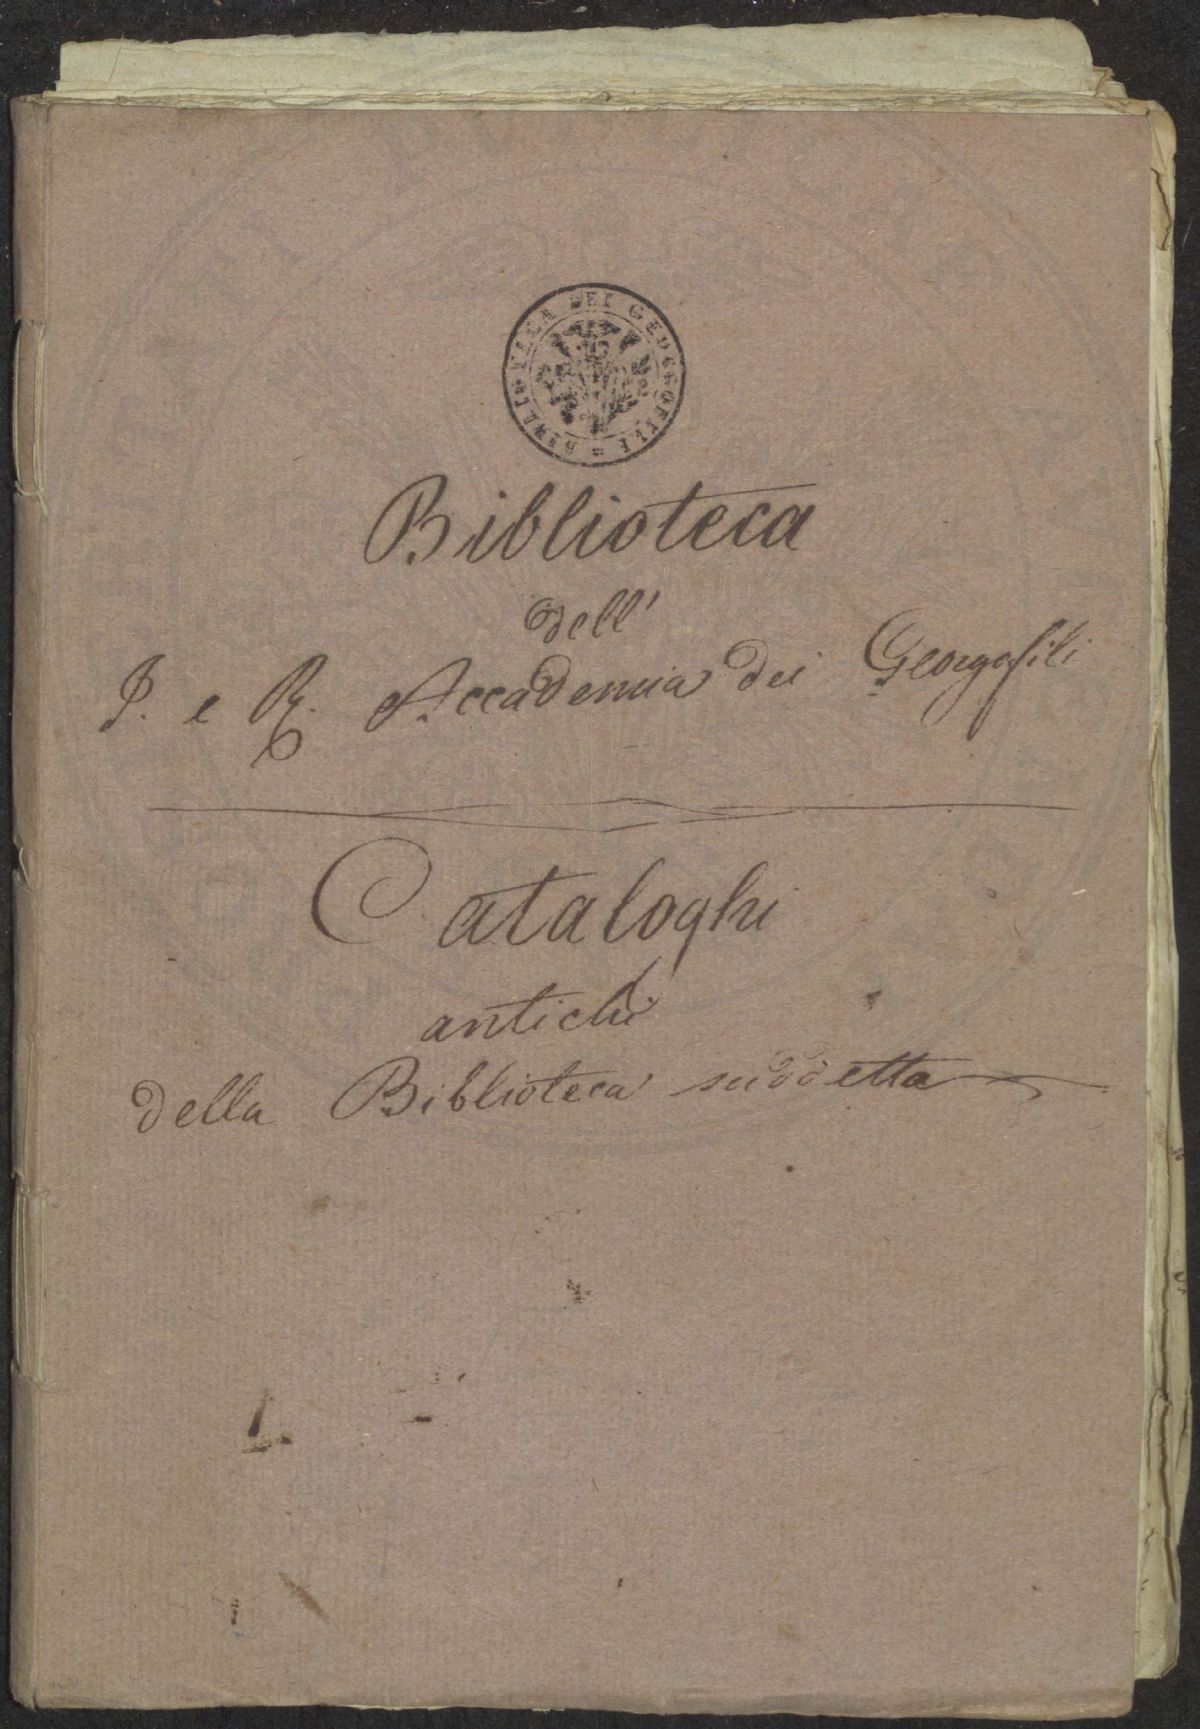 BIBLIOTECA DEI GEORGOFILI
Biblioteca
dell'
I. e R. Accademia dei Georgofili
Cataloghi
antichi
della Biblioteca suddetta